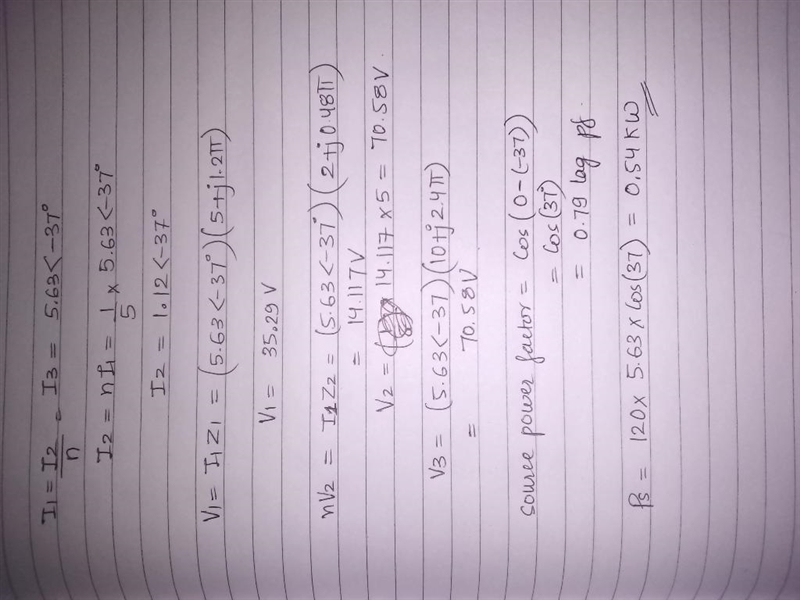 I1 = I2/n = I3 = 5.63<-37°
I2 = nI1 = 1/5 × 5.63<-37°
I2 = 1.12<-37°
V1 = I1Z1 = (5.63<-37°)(5+j1.2π)
V1 = 35.29 V
nV2 = I1Z2 = (5.63<-37°)(2+j0.48π)
= 14.117V
V2 = 14.117 × 5 = 70.58V
V3 = (5.63<-37)(10+j2.4π)
= 70.58V
source power factor = cos(0-(-37))
= cos(37°)
= 0.79 lag pf.
Ps = 120 × 5.63 × cos(37) = 0.54 KW